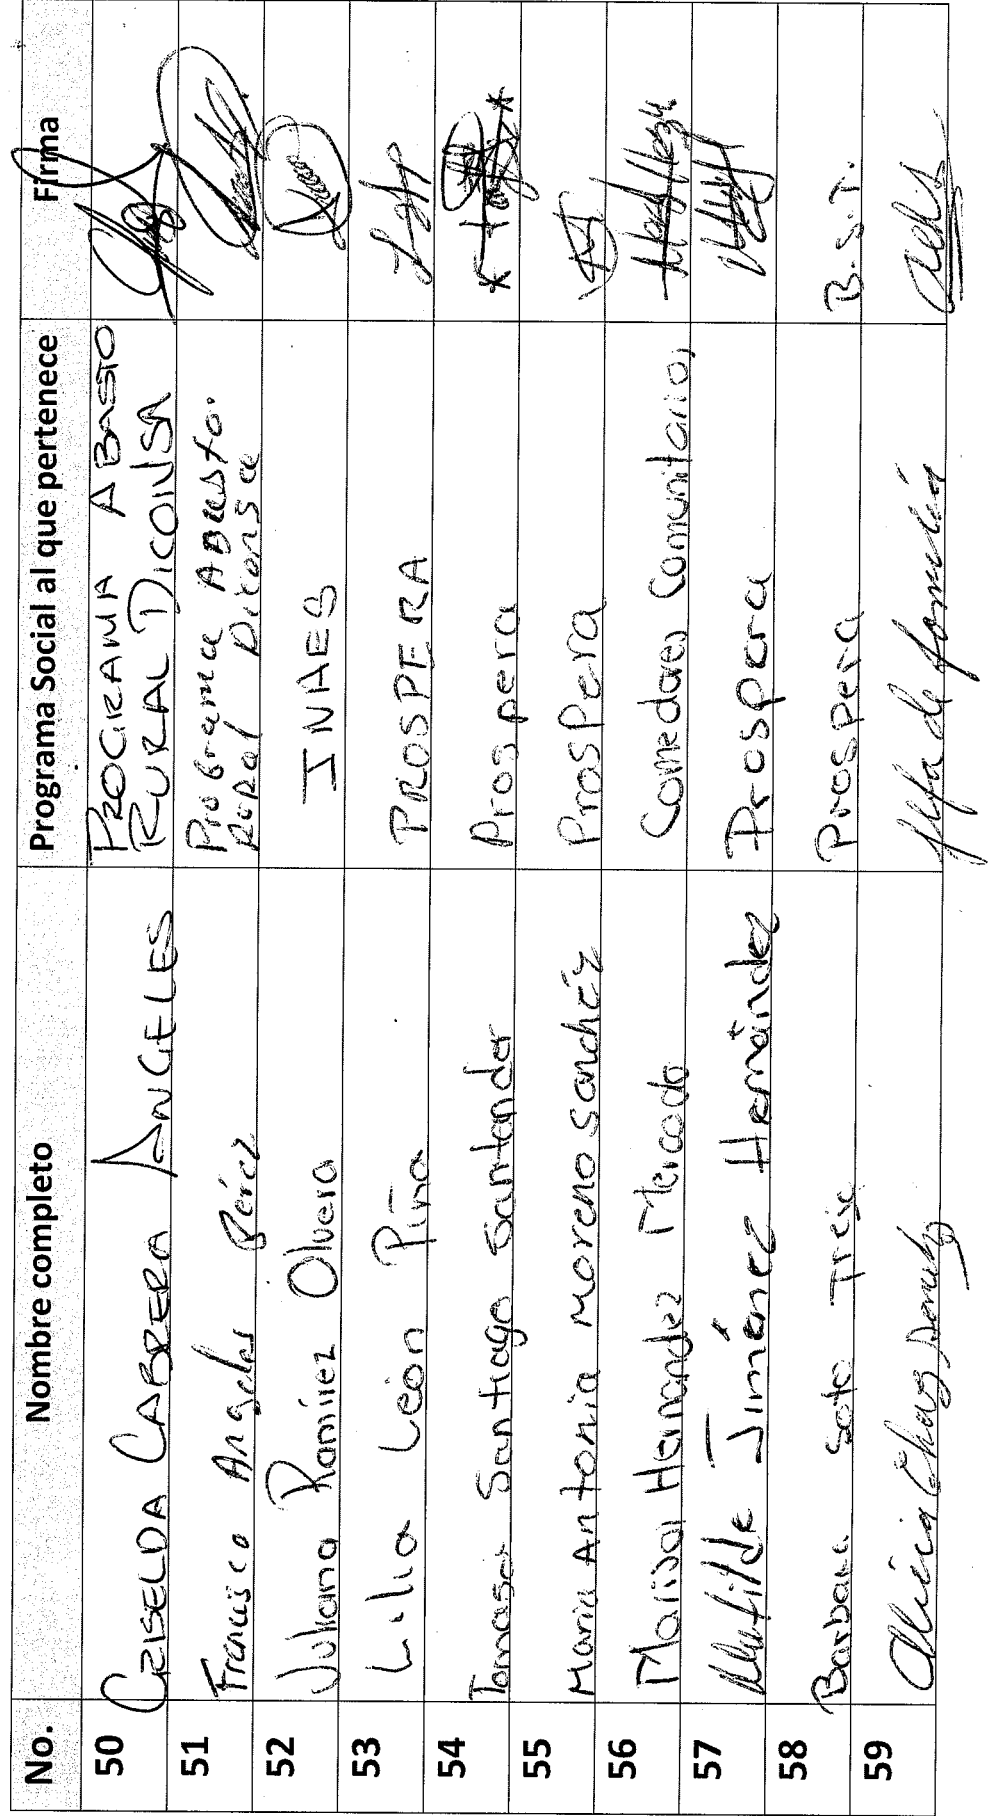 No. Nombre completo Programa Social al que pertenece Firma
50 GRISELDA CABRERA ANGELES PROGRAMA ABASTO
RURAL DICONSA
51 Francisco Angeles Pérez Programa ABasto.
Rural Diconsa
52 Juliana Ramírez Olvera INAES
53 Lilia León Piña PROSPERA
54 Tomasa Santiago Santander Prospera
55 Maria Antonia Moreno Sanchéz Prospera
56 Marisol Hernandez Mercado Comedores Comunitarios
57 Matilde Jiménez Hernández Prospera
58 Barbara Soto Trejo Prospera B.S.T.
59 Alicia Chavez Jefa de familia